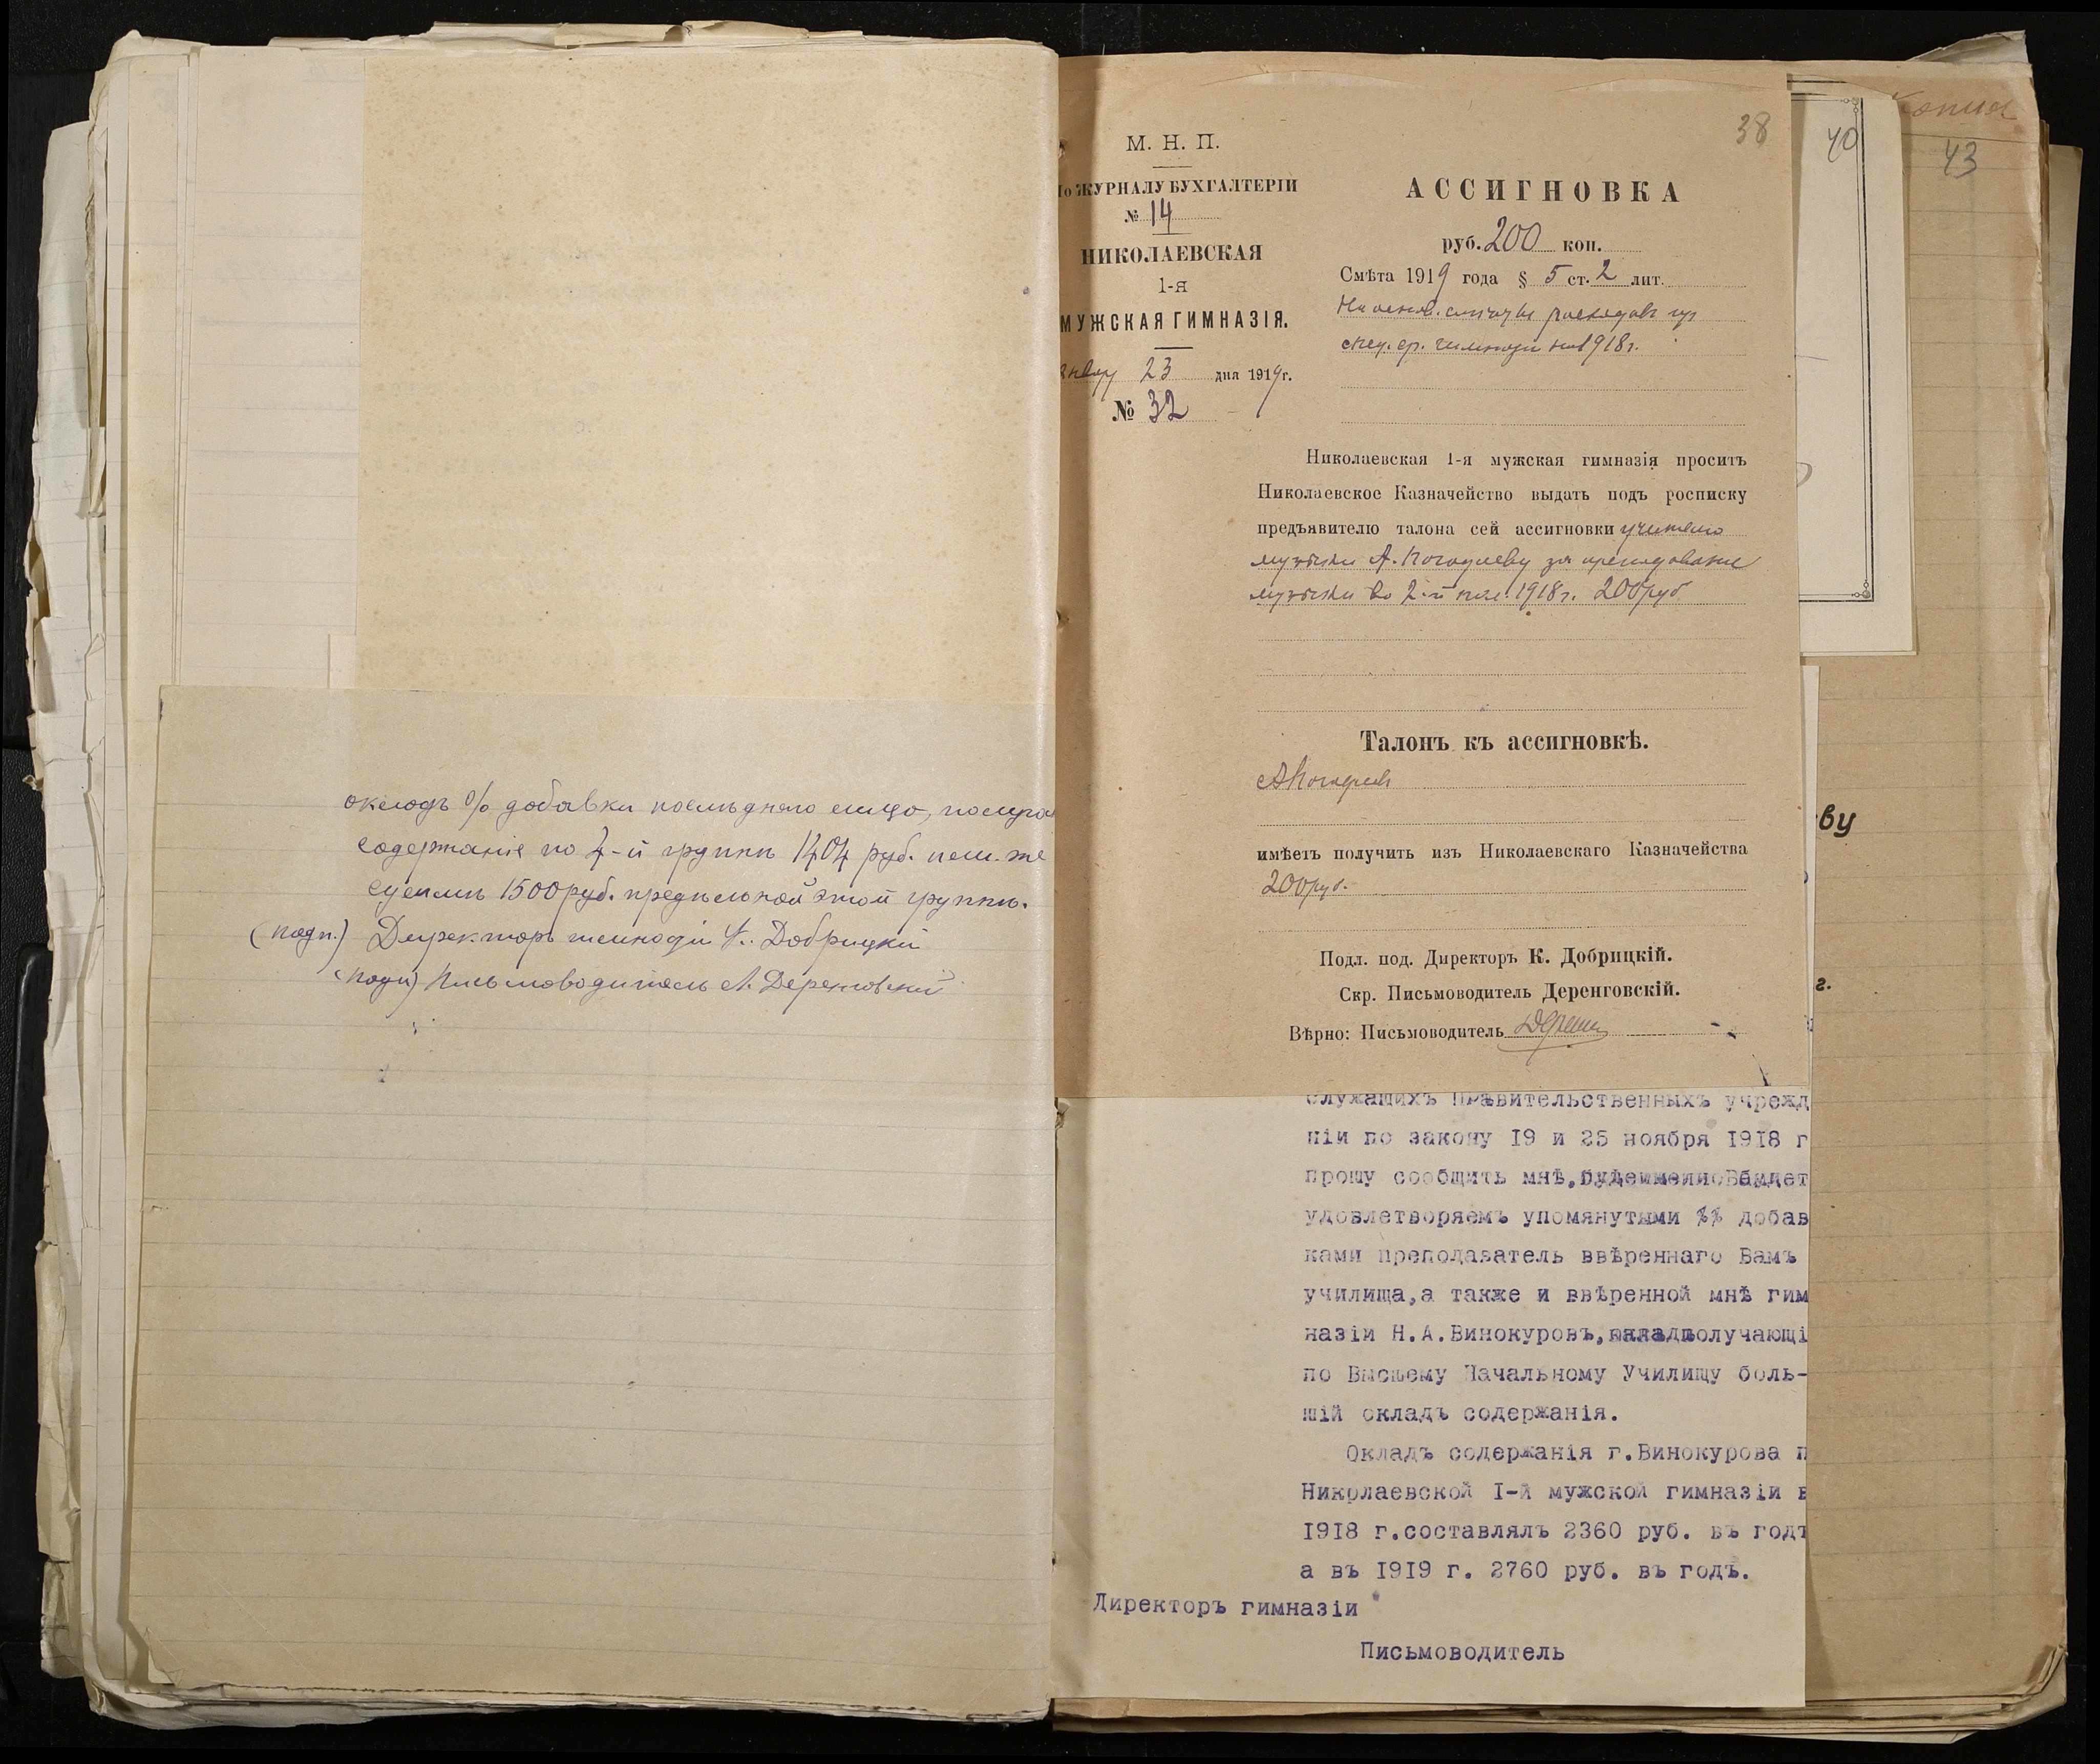 окладъ % добавки послѣдняго лицо, получа
содержанія по 4-й группѣ 1404 руб. 
суммѣ 1500 руб. предѣльной этой группы.
(подп.) Директоръ гимназіи К. Добрицкій
(подп) Письмоводитель А. Деренговскій
38
М. Н. П.
По ЖУРНАЛУ БУХГАЛТЕРІИ
№ 14
НИКОЛАЕВСКАЯ
1-я
МУЖСКАЯ ГИМНАЗІЯ.
январ 23 дня 1919 г.
№ 32
АССИГНОВКА
руб. 200 коп.
Смѣта 1919 года § 5 ст. 2 лит.
На основ. смѣты расходовъ из
спец. ср. гимназіи на 1918 г.
Николаевская 1-я мужская гимназія проситъ
Николаевское Казначейство выдать подъ росписку
предъявителю талона сей ассигновки учителю
музыки А. за преподованіе
музыки во 2-й пол. 1918 г. 200 руб
Талонъ къ ассигновкѣ.
имѣетъ получить изъ Николаевскаго Казначейства
200 руб.
Подл. под. Директоръ К. Добрицкій.
Скр. Письмоводитель Деренговскій.
Вѣрно: Письмоводитель
служащихъ Правительственныхъ учрежд
ніи по закону 19 и 25 ноября 1918 г
прошу сообщить мнѣ,
удовлетворяемъ упомянутыми %% добав
ками преподаватель ввѣреннаго Вамъ
училища,а также и ввѣренной мнѣ гим
назіи Н.А.Винокуровъ, получающі
по Высшему Начальному Училищу боль-
шій окладъ содержанія.
Окладъ содержанія г.Винокурова п
Николаевской I-й мужской гимназіи в
1918 г.составлялъ 2360 руб. въ годъ
а въ 1919 г. 2760 руб. въ годъ.
Директоръ гимназіи
Письмоводитель
40
Копия
43
ву
г.